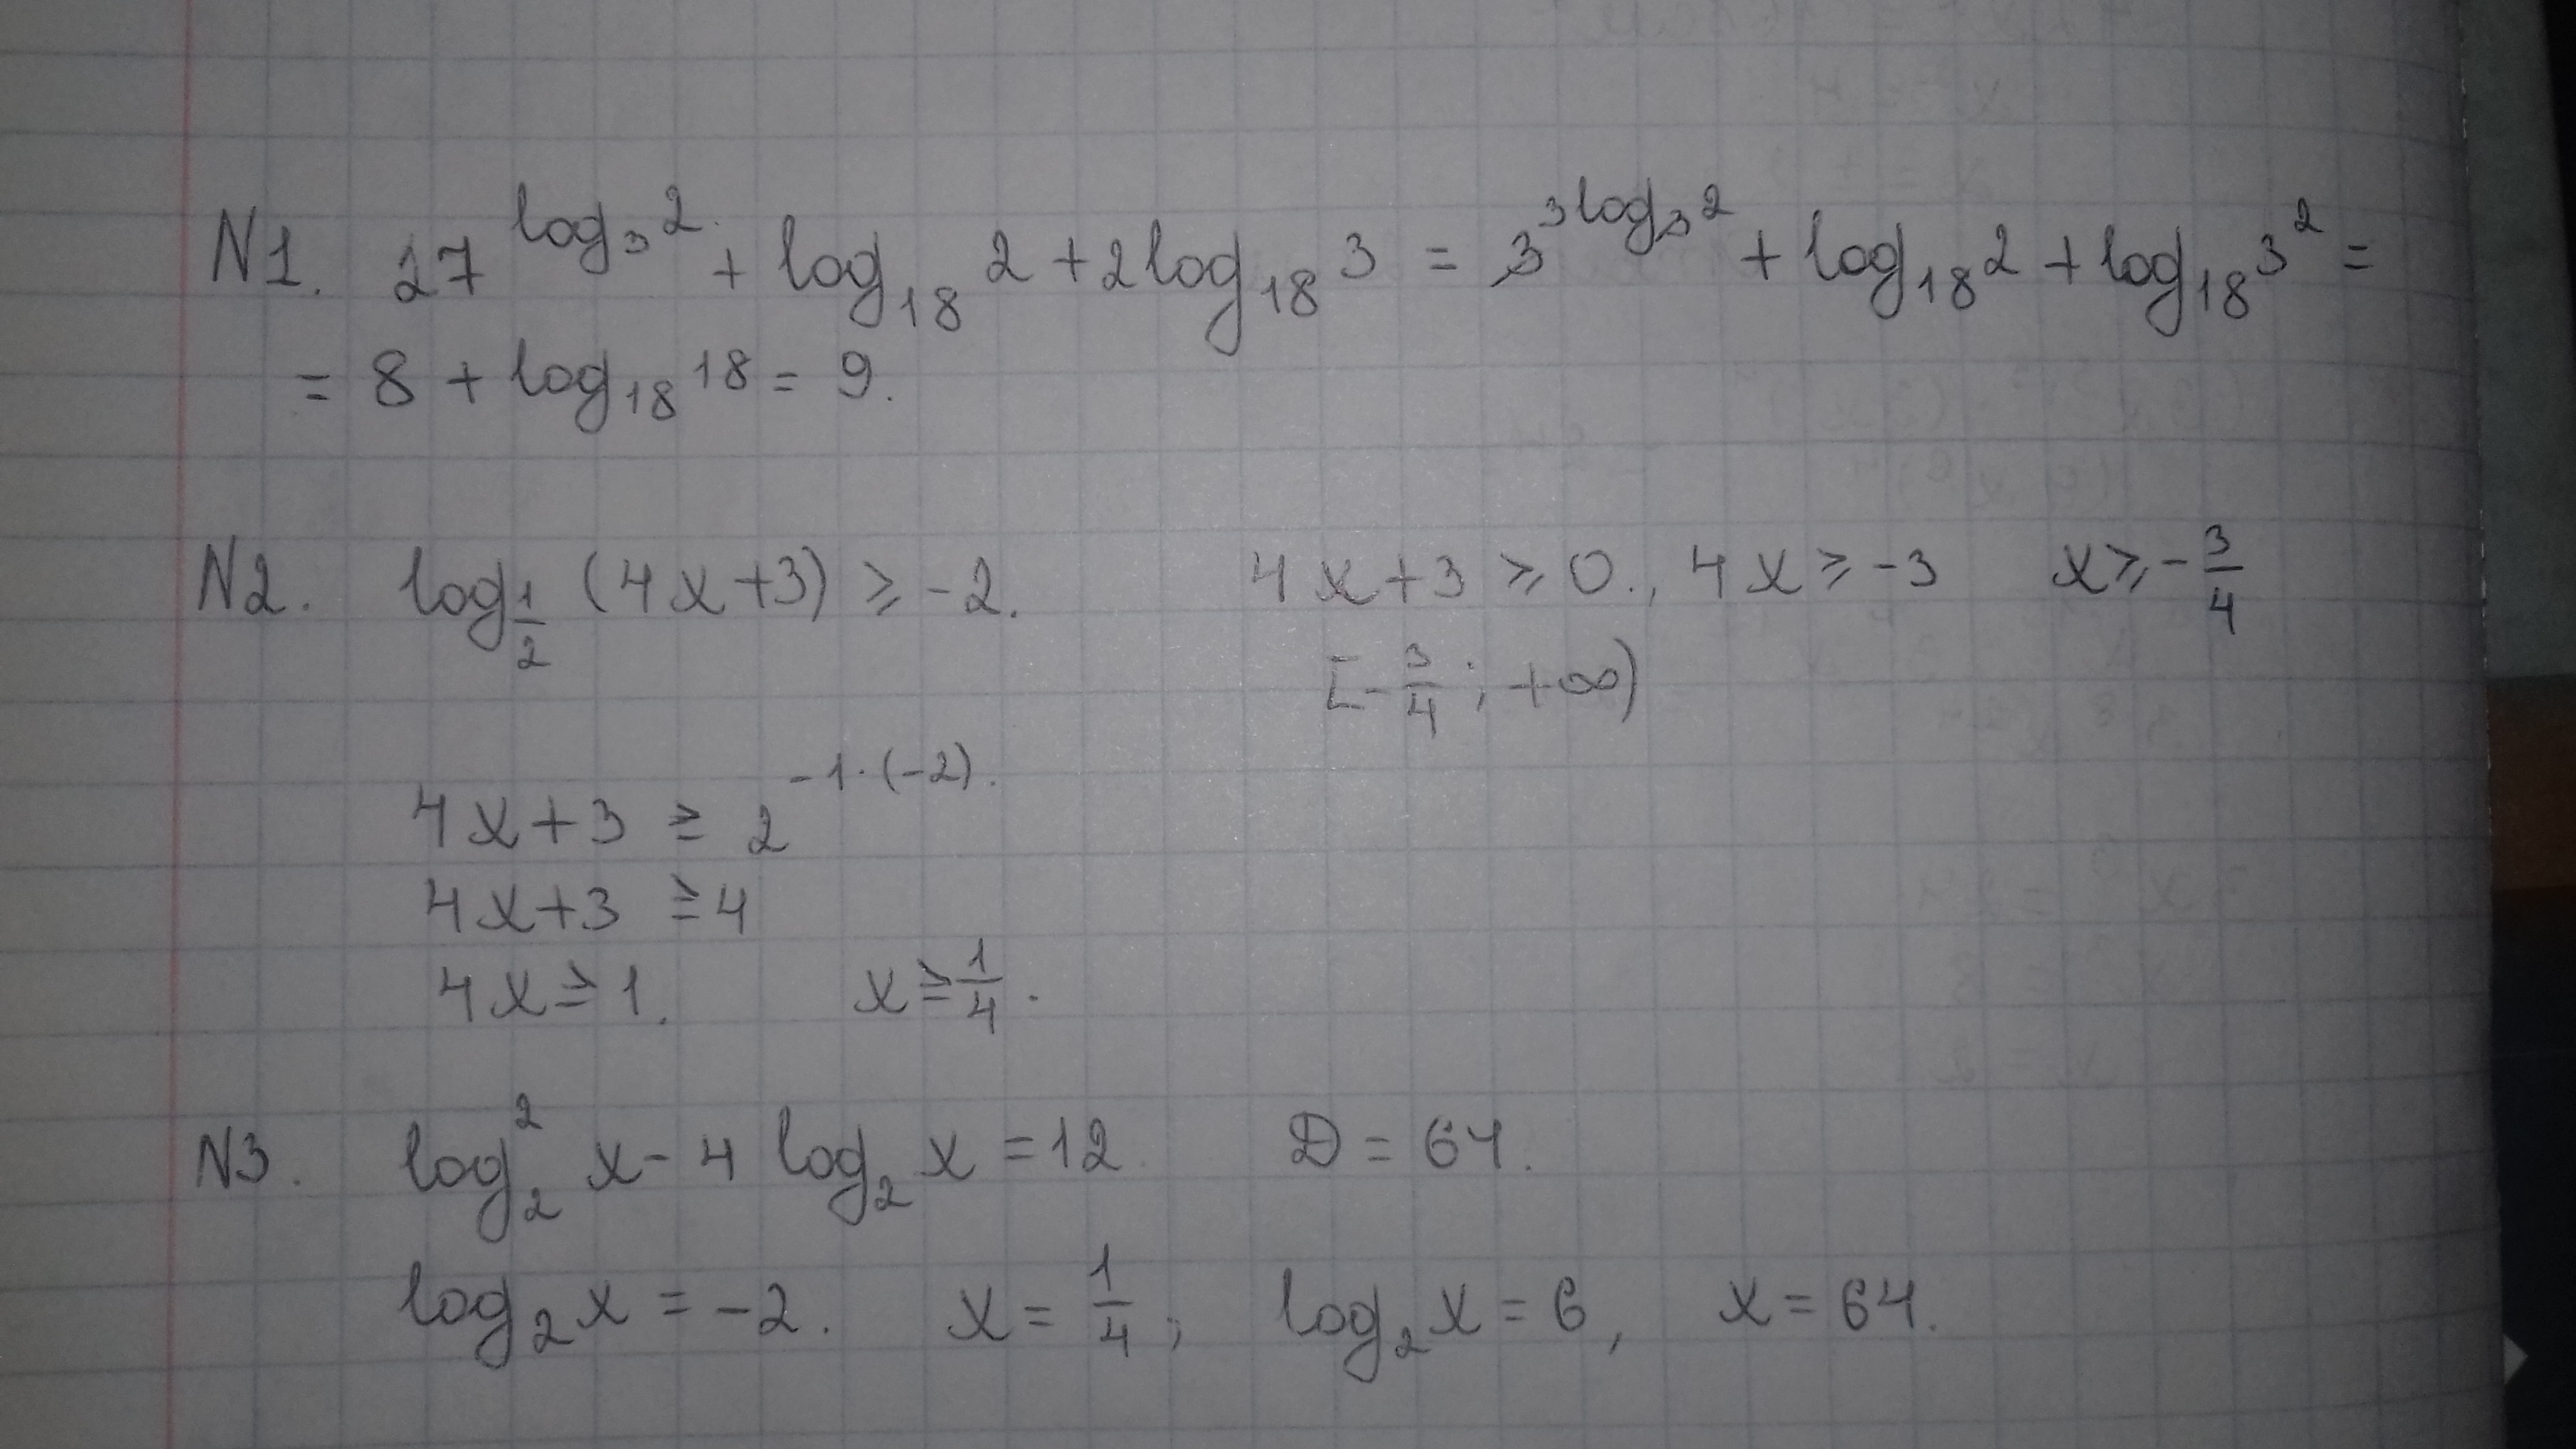 N1. 27^{log_3 2} + log_{18} 2 + 2log_{18} 3 = 3^{3log_3 2} + log_{18} 2 + log_{18} 3^2 =
= 8 + log_{18} 18 = 9.
N2. log_{1/2} (4x+3) ≥ -2. 4x+3 ≥ 0., 4x ≥ -3 x ≥ -3/4
[-3/4; +∞)
4x+3 ≥ 2^{-1·(-2)}.
4x+3 ≥ 4
4x ≥ 1. x ≥ 1/4.
N3. log_2^2 x - 4 log_2 x = 12. D = 64.
log_2 x = -2. x = 1/4; log_2 x = 6, x = 64.